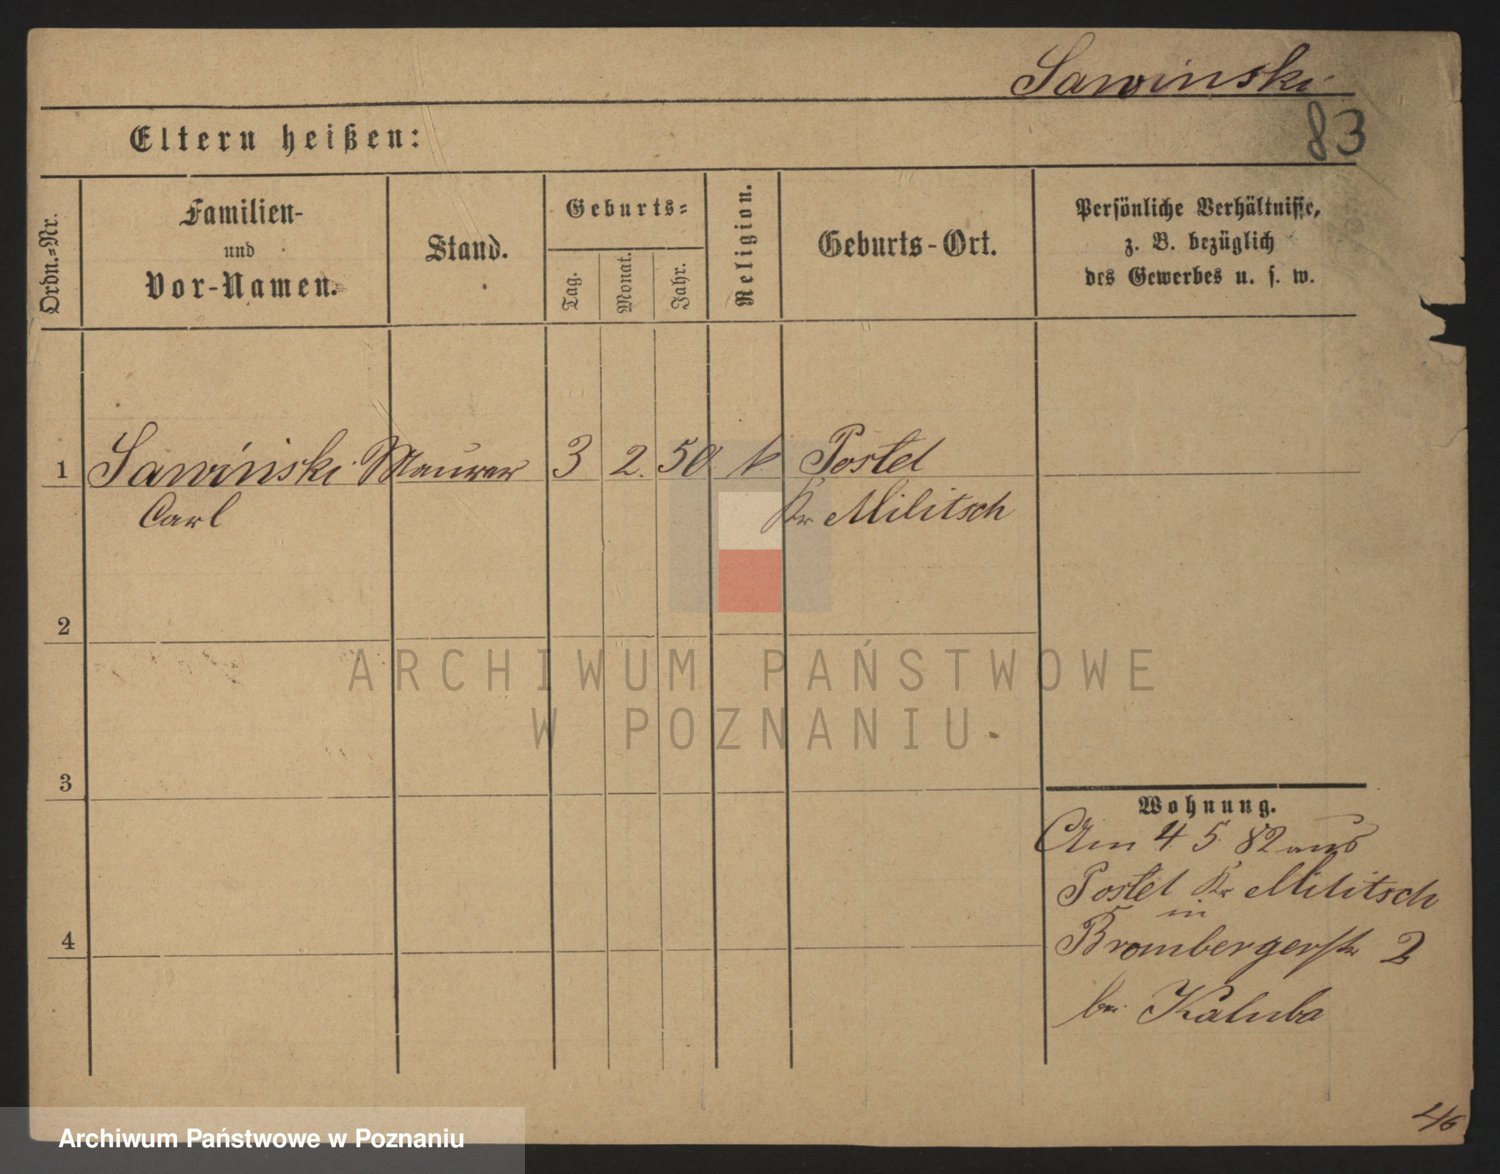 Sawinski
83
Eltern heißen:
Ordn.-Nr.
Familien-
und
Vor-Namen.
Stand.
Geburts-
Tag.
Monat.
Jahr.
Religion.
Geburts-Ort.
Persönliche Verhältnisse,
z. B. bezüglich
des Gewerbes u. s. w.
1 Sawinski Maurer 3 2. 50 k Postel
Carl Kr. Militsch
2
3
4
Wohnung.
Am 4 5 82 aus
Postel Kr Militsch
in
Brombergerstr 2
bei Kaluba
ARCHIWUM PAŃSTWOWE
W POZNANIU
Archiwum Państwowe w Poznaniu